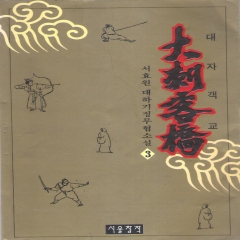 대자객교
大刺客橋
서효원 대하기정무협소설
3
서울창작